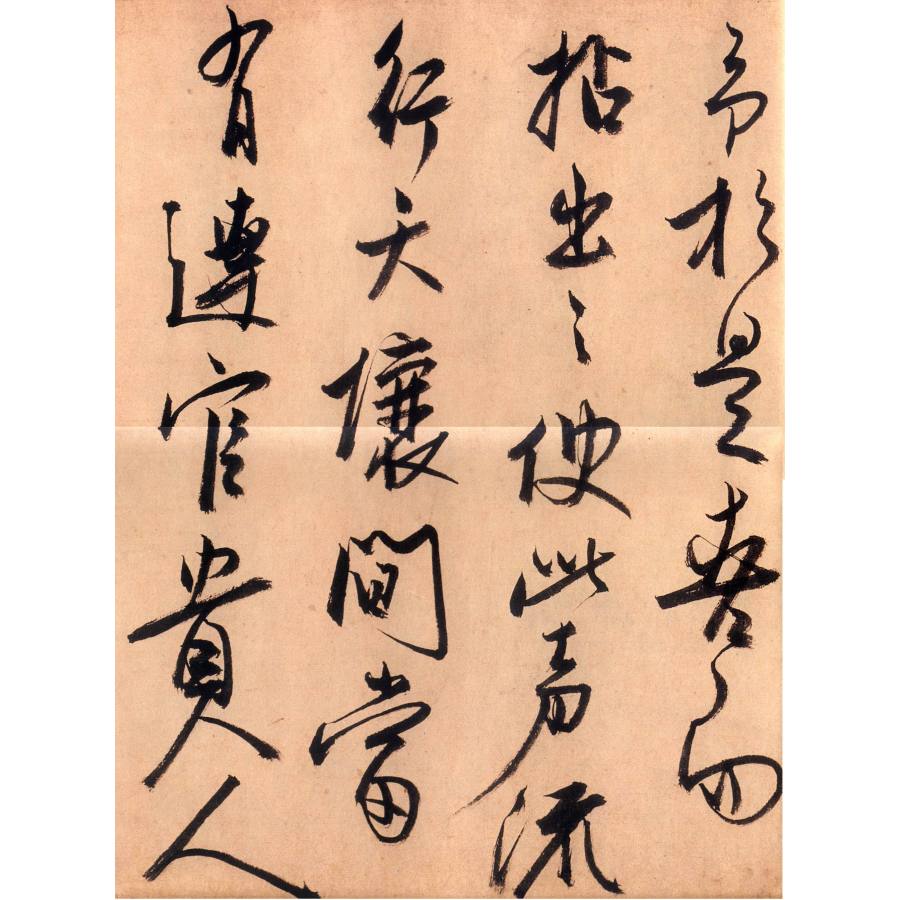 予於是喜而
拈出之使此声流
行天壤間當
有達官貴人